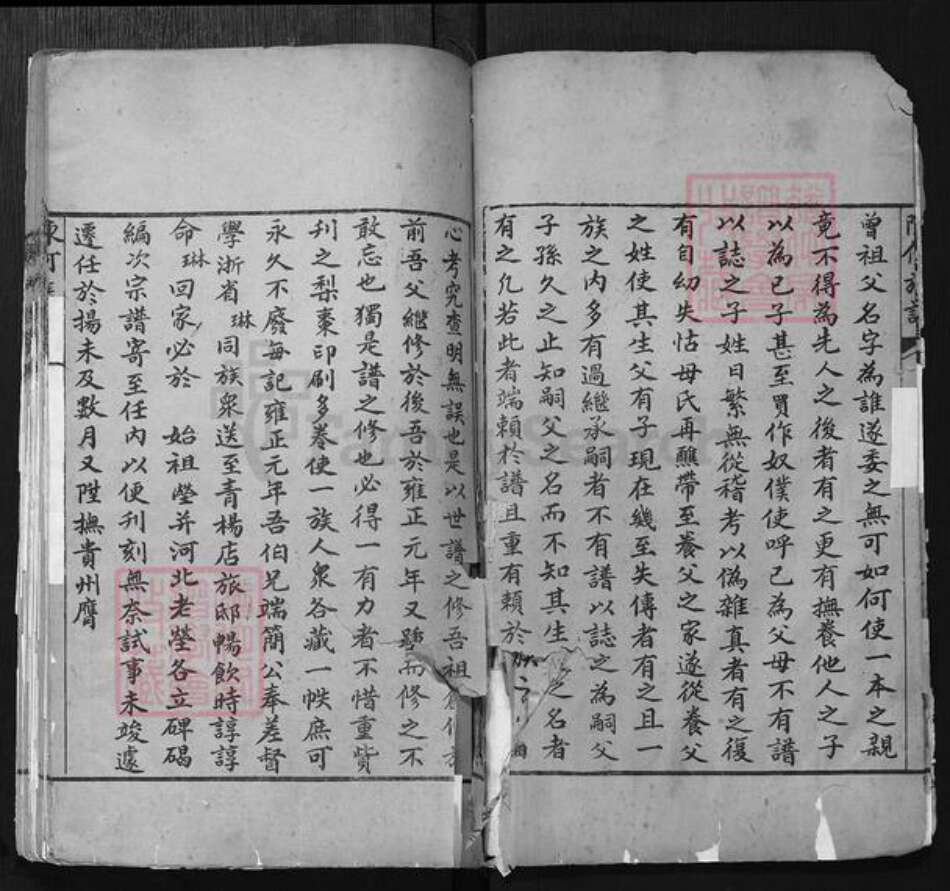 曾祖父名字為誰遂委之無可如何使一本之親
竟不得為先人之後者有之更有撫養他人之子
以為已子甚至買作奴僕使呼己為父母不有譜
以誌之子姓日繁無從稽考以偽雜真者有之復
有自幼失怙母氏再醮帶至養父之家遂從養父
之姓使其生父有子現在幾至失傳者有之且一
族之內多有過繼承嗣者不有譜以誌之為嗣父
子孫久之止知嗣父之名而不知其生之名者
有之凡若此者端賴於譜且重有賴於族
心考究查明無誤也是以世譜之修吾祖
前吾父繼修於後吾於雍正元年又踵而修之不
敢忘也獨是譜之修也必得一有力者不惜重貲
刊之梨棗印刷多卷使一族人眾各藏一帙庶可
永久不廢每記雍正元年吾伯兄端簡公奉差督
學浙省琳同族眾送至青楊店旅邸暢飲時諄諄
命琳回家必於 始祖塋并河北老塋各立碑碣
編次宗譜寄至任內以便刊刻無奈試事未竣遽
遷任於揚未及數月又陞撫貴州膺